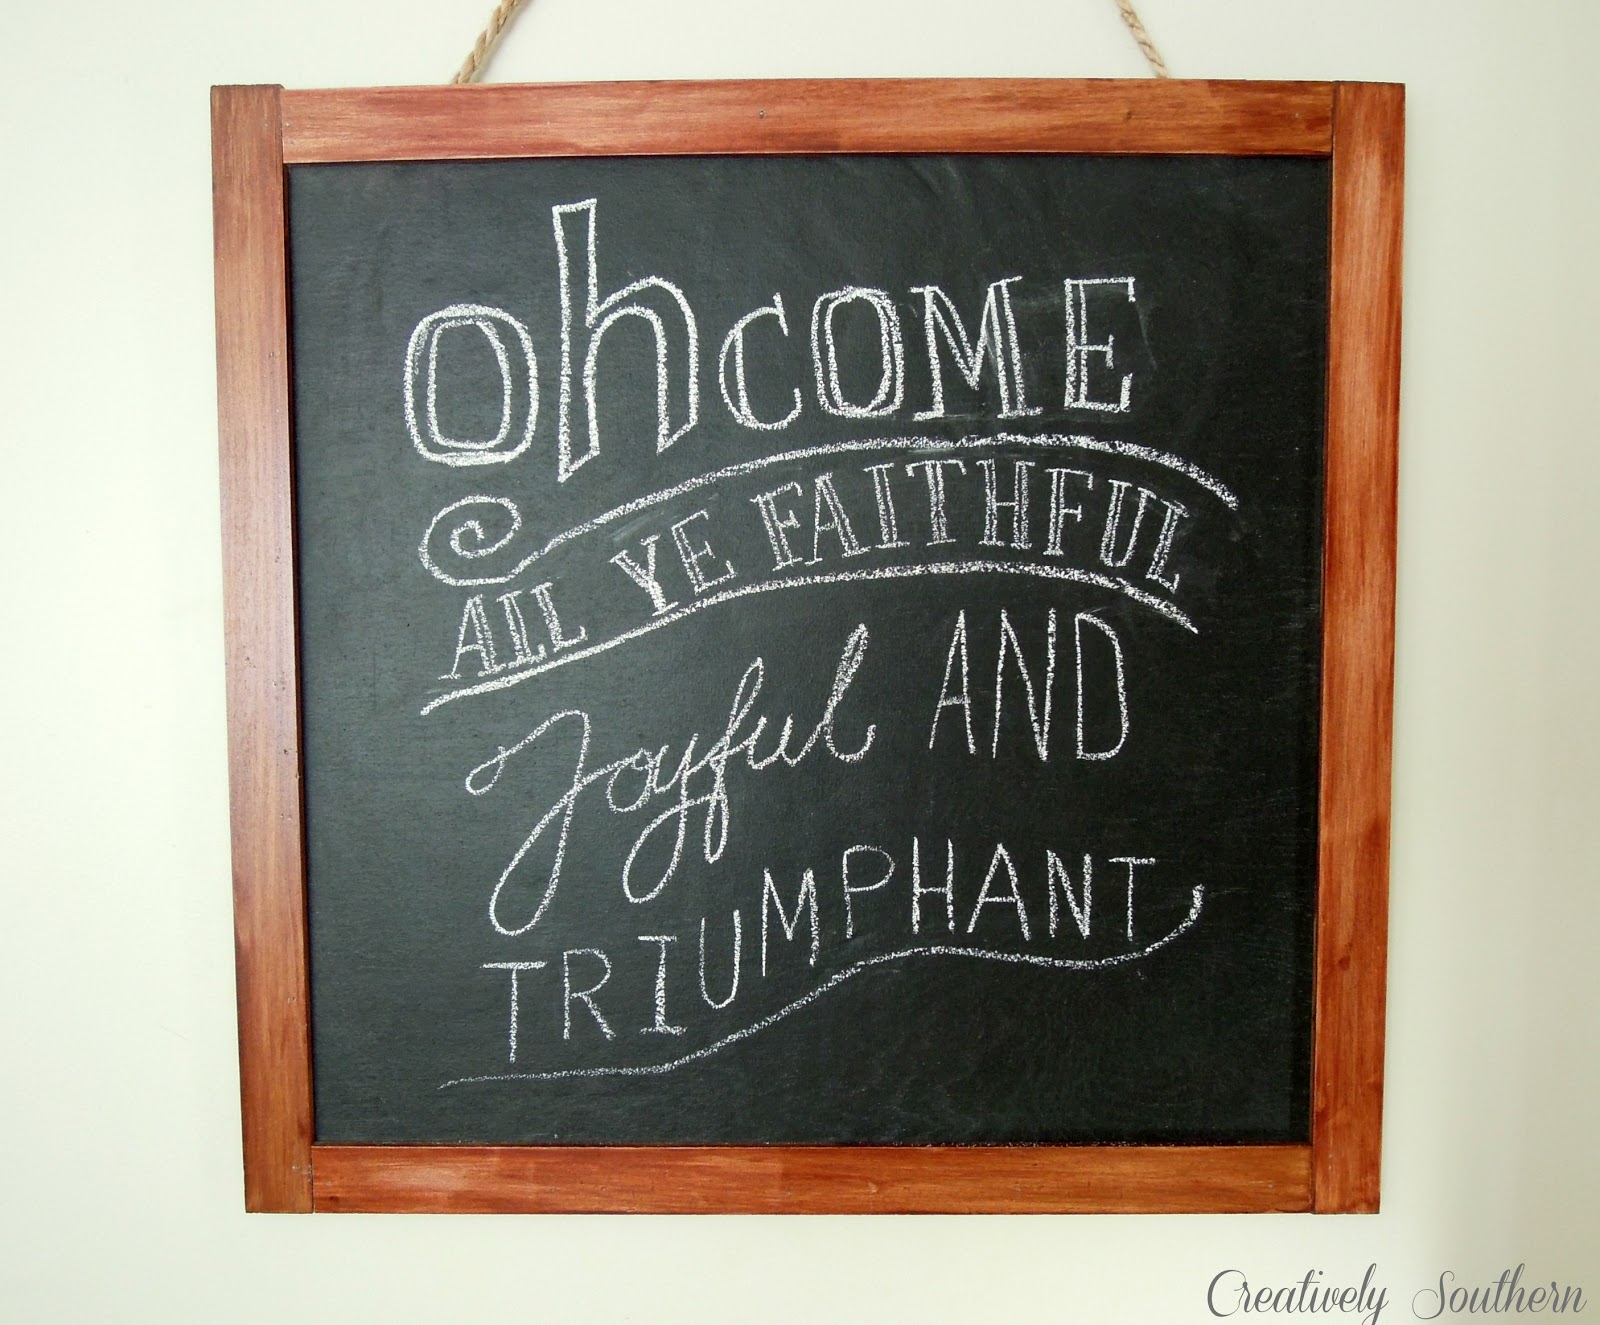 oh COME
ALL YE FAITHFUL
Joyful AND
TRIUMPHANT
Creatively Southern